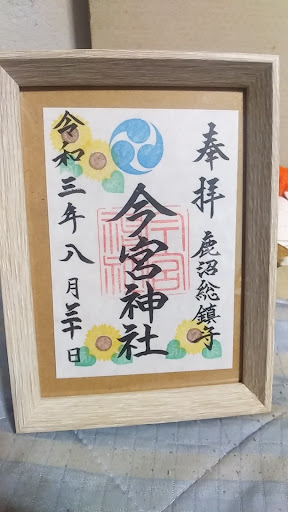 奉拝
鹿沼総鎮守
今宮神社
令和三年八月三十日